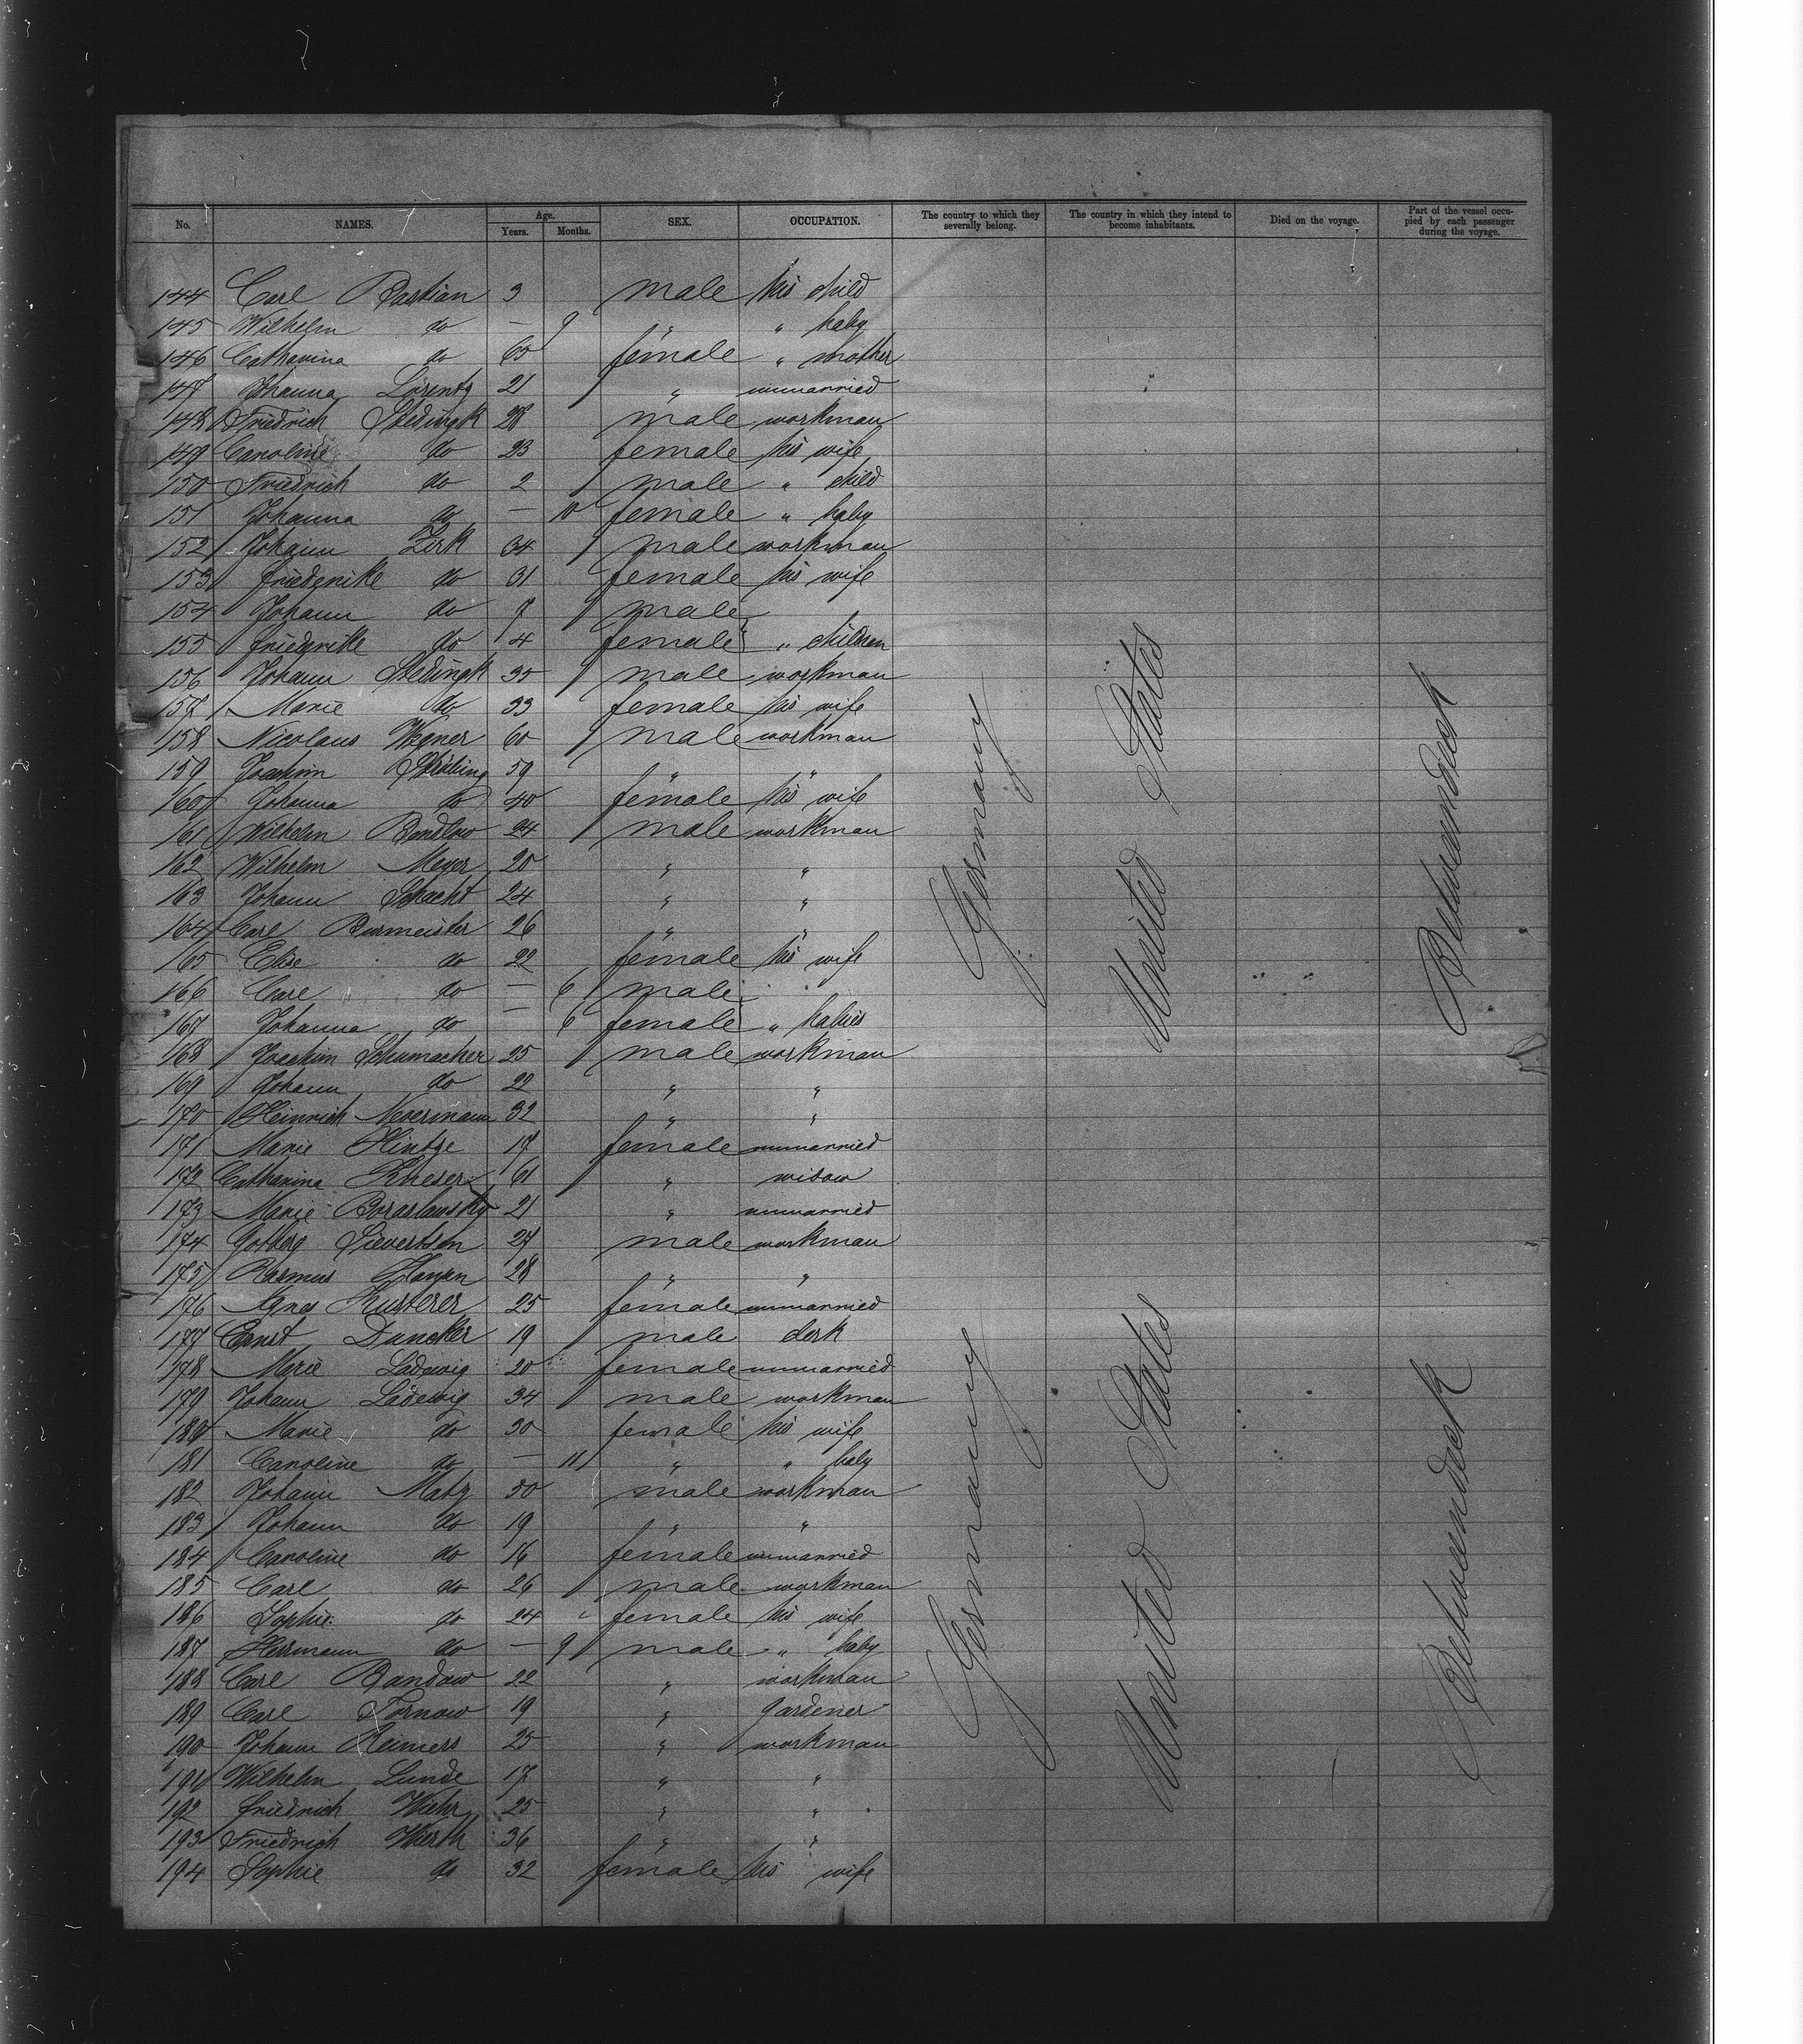 No. NAMES. Age. Years. Months. SEX. OCCUPATION. The country to which they severally belong. The country in which they intend to become inhabitants. Died on the voyage. Part of the vessel occupied by each passenger during the voyage.
144 Carl Bastian 3 male his child
145 Wilhelm do — 9 " " baby
146 Catharina do 65 female " mother
147 Johanna Lorentz 21 " unmarried
148 Friedrich Stedingk 28 male workman
149 Caroline do 23 female his wife
150 Friedrich do 2 male " child
151 Johanna do — 10 female " baby
152 Johann Zirk 34 male workman
153 Friederike do 31 female his wife
154 Johann do 7 male
155 Friederike do 4 female " children
156 Johann Stedingk 35 male workman
157 Marie do 33 female his wife
158 Nicolaus Wegner 60 male workman
159 Joachim Strübing 59 " "
160 Johanna do 40 female his wife
161 Wilhelm Bandlow 24 male workman
162 Wilhelm Meyer 20 " "
163 Johann Schacht 24 " "
164 Carl Burmeister 26 " "
165 Elise do 22 female his wife
166 Carl do — 6 male
167 Johanna do — 6 female " babies
168 Joachim Schumacher 25 male workman
169 Johann do 22 " "
170 Heinrich Moermann 32 " "
171 Marie Hintze 17 female unmarried
172 Catharina Knieser 61 " widow
173 Marie Boraslawsky 21 " unmarried
174 Gotberg Sievertsen 27 male workman
175 Rasmus Hansen 28 " "
176 Agnes Kusterer 25 female unmarried
177 Ernst Duncker 19 male clerk
178 Marie Ladewig 20 female unmarried
179 Johann Ladewig 34 male workman
180 Marie do 30 female his wife
181 Caroline do — 11 " " baby
182 Johann Matz 50 male workman
183 Johann do 19 " "
184 Caroline do 16 female unmarried
185 Carl do 26 male workman
186 Sophie do 24 female his wife
187 Hermann do — 9 male " baby
188 Carl Bandow 22 " workman
189 Carl Tornow 19 " gardener
190 Johann Reimers 25 " workman
191 Wilhelm Lunde 17 " "
192 Friedrich Wiehr 25 " "
193 Friedrich Wierth 36 " "
194 Sophie do 32 female his wife
Germany United States Betweendeck
Germany United States Betweendeck